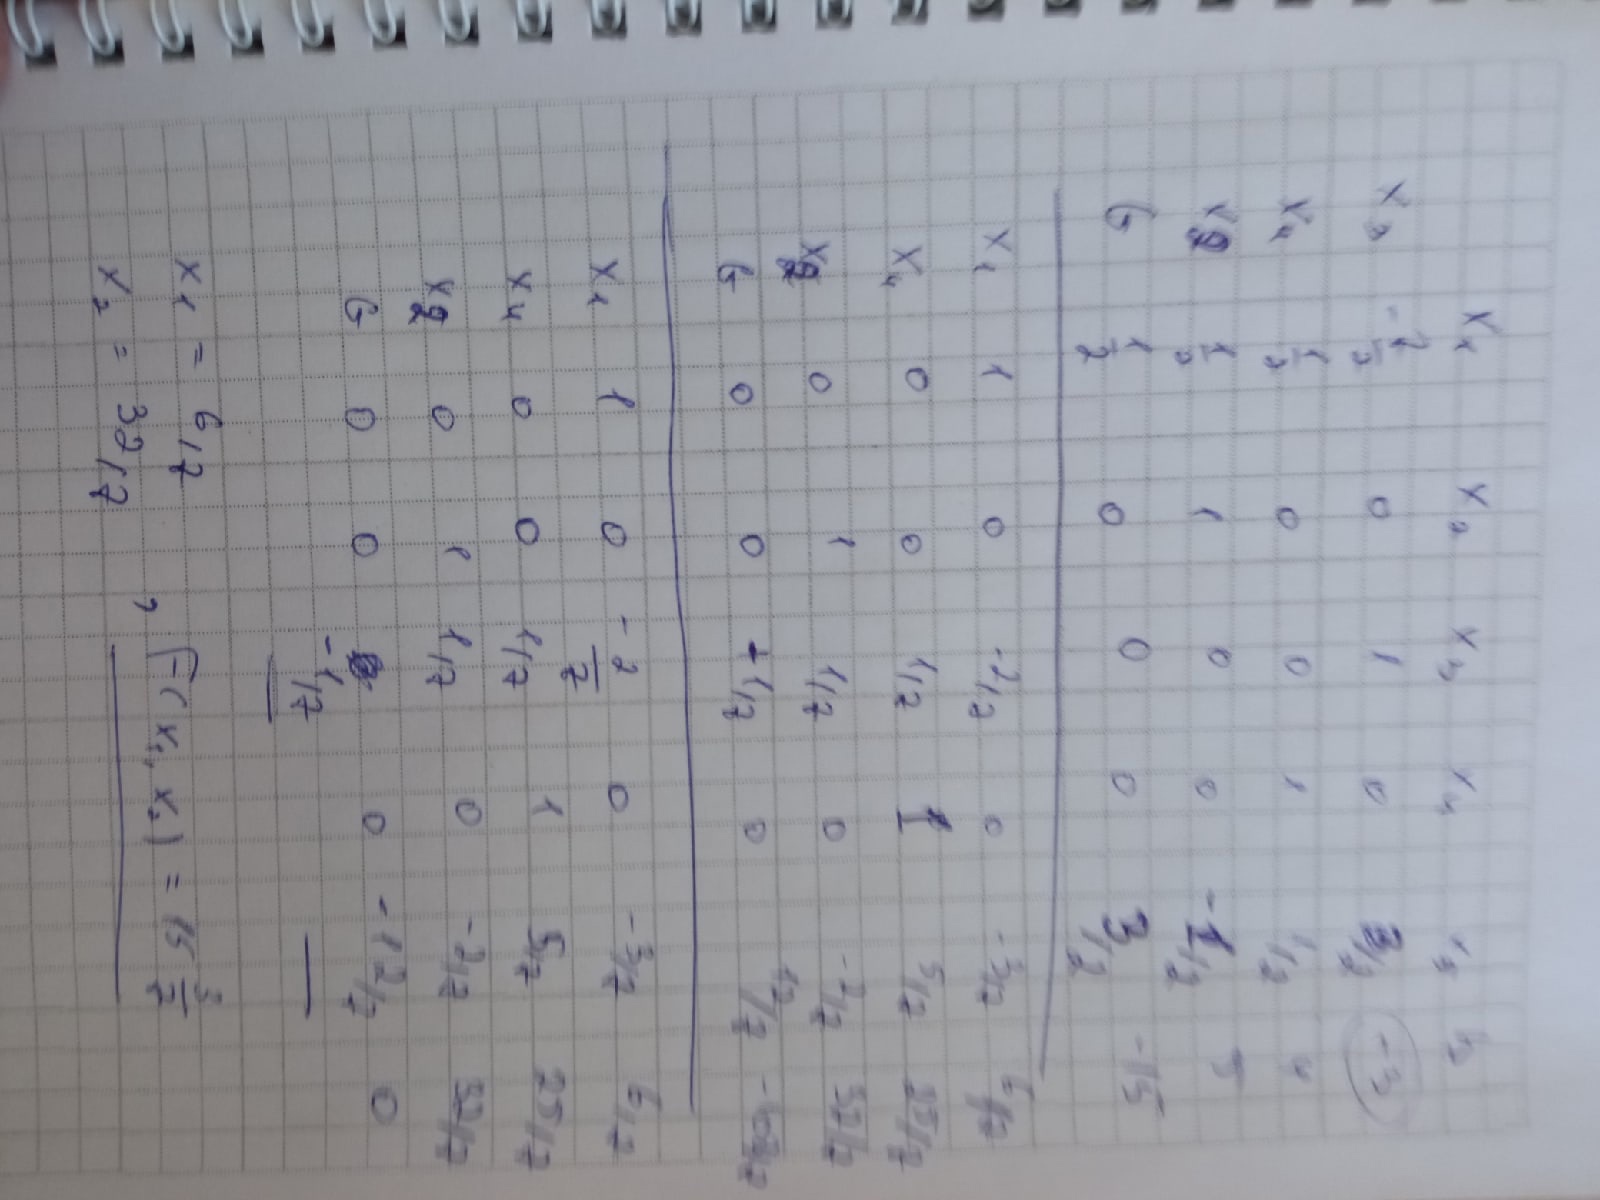 x1 x2 x3 x4 x5
x3 -7/2 0 1 0 3/2 -3
x4 1/2 0 0 1 1/2 4
x2 1/2 1 0 0 -1/2 5
G 1/2 0 0 0 3/2 -15
x1 1 0 -2/7 0 -3/7 6/7
x4 0 0 1/7 1 5/7 25/7
x2 0 1 1/7 0 -2/7 32/7
G 0 0 +1/7 0 12/7
x1 1 0 -2/7 0 -3/7 6/7
x4 0 0 1/7 1 5/7 25/7
x2 0 1 1/7 0 -2/7 32/7
G 0 0 0 -12/7 0
-1/7
x1 = 6/7
, F(x1, x2) = 15 3/7
x2 = 32/7